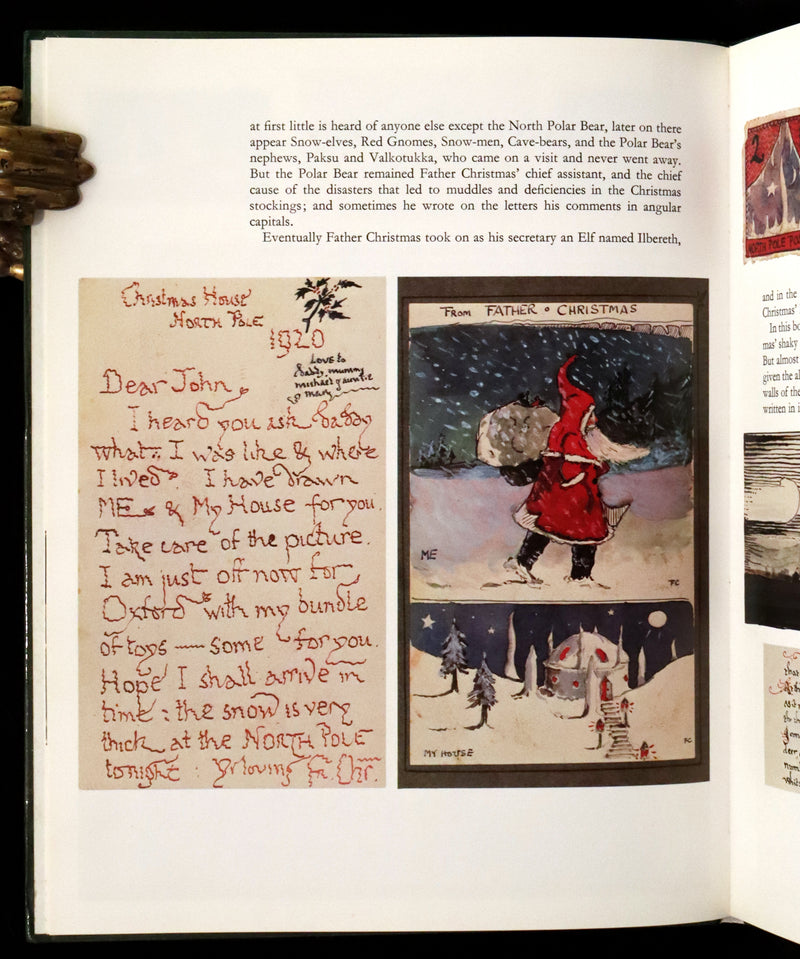 at first little is heard of anyone else except the North Polar Bear, later on there
appear Snow-elves, Red Gnomes, Snow-men, Cave-bears, and the Polar Bear's
nephews, Paksu and Valkotukka, who came on a visit and never went away.
But the Polar Bear remained Father Christmas' chief assistant, and the chief
cause of the disasters that led to muddles and deficiencies in the Christmas
stockings; and sometimes he wrote on the letters his comments in angular
capitals.
Eventually Father Christmas took on as his secretary an Elf named Ilbereth,
Christmas House
NORTH POLE
1920
Love to
daddy, mummy
michael & auntie
& mary
Dear John,
I heard you ask daddy
what I was like & where
I lived. I have drawn
ME & My House for you.
Take care of the picture.
I am just off now for
Oxford with my bundle
of toys — some for you.
Hope I shall arrive in
time : the snow is very
thick at the NORTH POLE
tonight : Yr loving Fr. Chr.
FROM FATHER CHRISTMAS
ME
FC
MY HOUSE
FC
2
NORTH POLE
and in the
Christmas'
In this bo
mas' shaky
But almost
given the al
walls of the
written in i